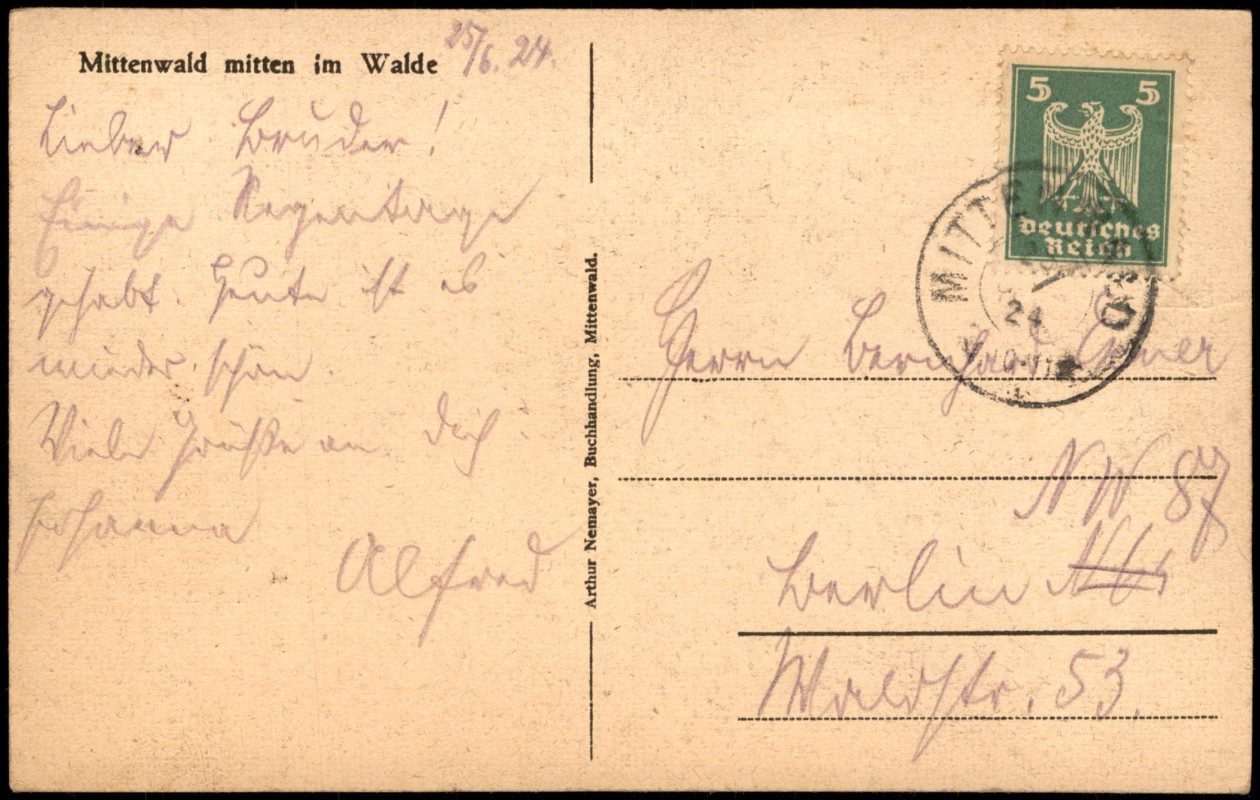 Mittenwald mitten im Walde 25/6. 24.
Lieber Bruder!
Einige Regentage
gehabt. Heute ist es
wieder schön.
Viele Grüße an Dich
Johanna
Alfred
Arthur Nemayer, Buchhandlung, Mittenwald.
5 5
Deutsches
Reich
MITTENWALD
24
10-11
Herrn Bernhard
NW 87
Berlin
Waldstr. 53.